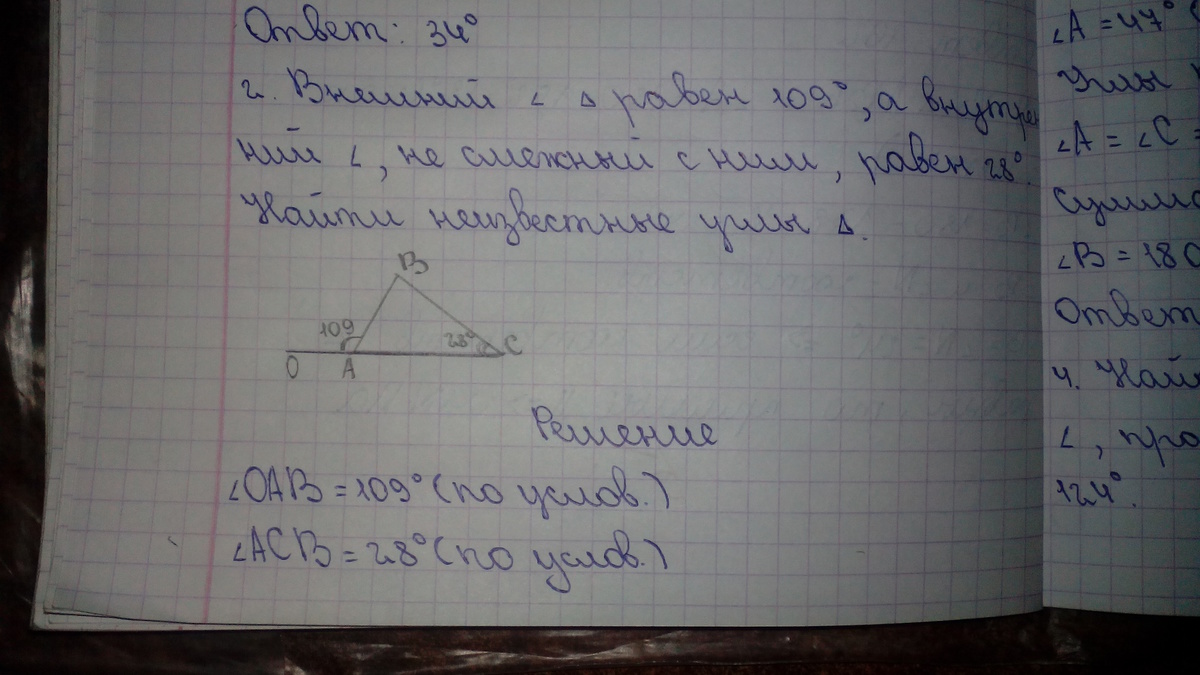 Ответ: 34°
2. Внешний ∠ Δ равен 109°, а внутрен
ний ∠, не смежный с ним, равен 28°.
Найти неизвестные углы Δ.
B
109
28°
C
O A
Решение
∠OAB = 109° (по услов.)
∠ACB = 28° (по услов.)
∠A = 47° (
Углы
∠A = ∠C =
Сумма
∠B = 180
Ответ
4. Най
∠, про
124°.